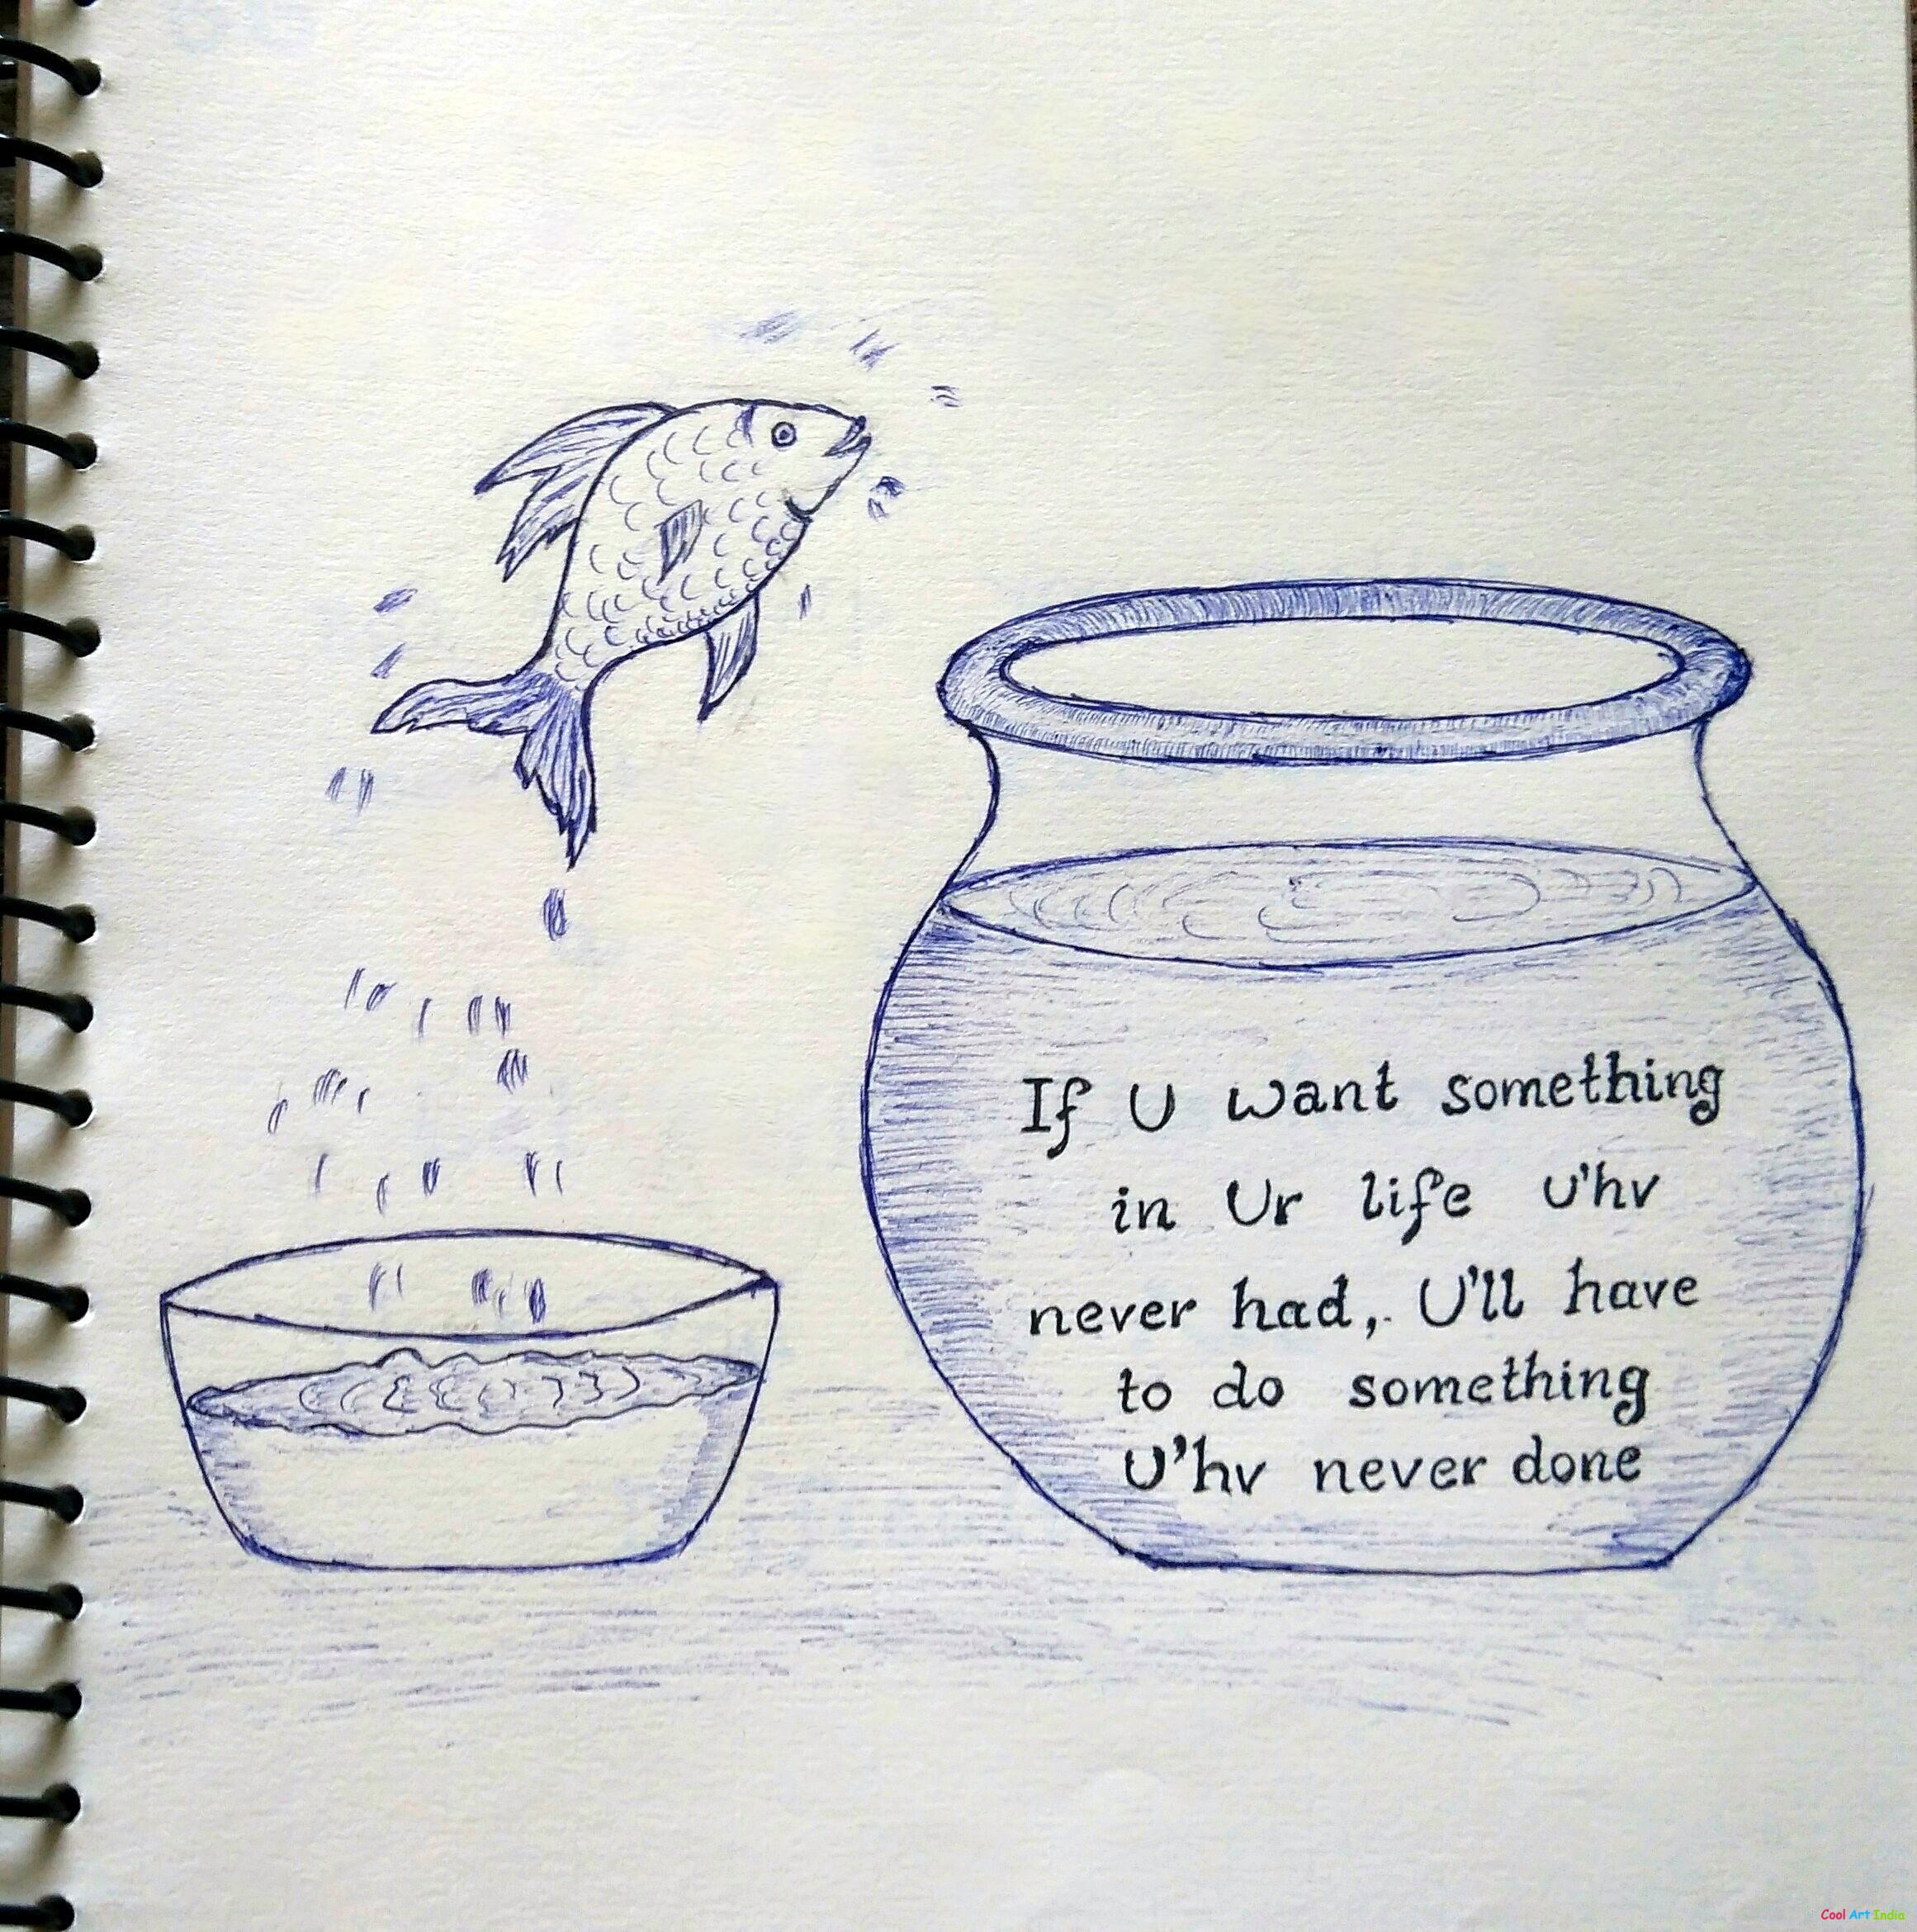 If U want something
in Ur life U'hv
never had, U'll have
to do something
U'hv never done
Cool Art India